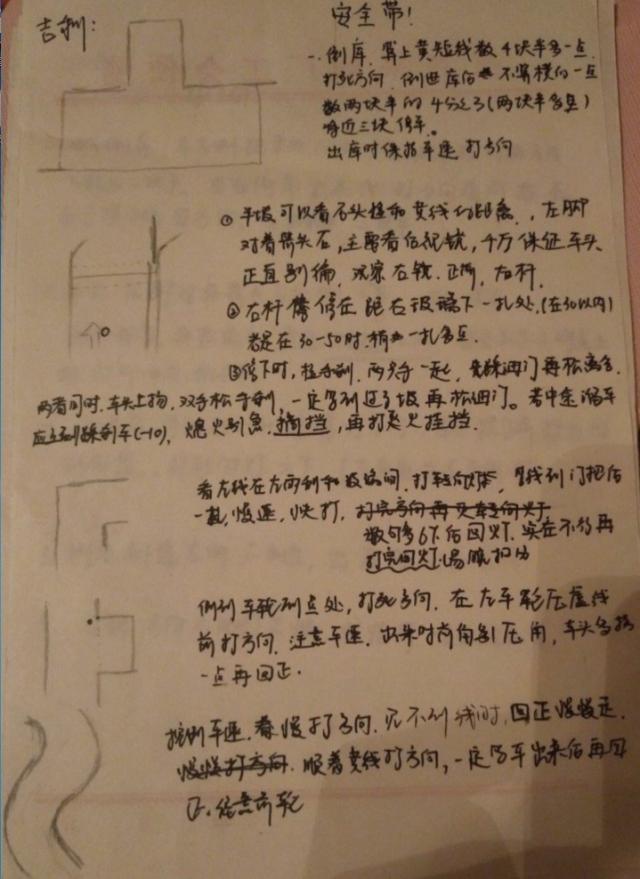 吉利:
安全带!
一、倒库, 算上黄短线数4块半多一点
打死方向 倒进库后 不算横向一点
数两块半的4分之3(两块半多点)
将近三块停车。
出库时保持车速 打方向
① 半坡可以看石头柱和黄线的距离, 左脚
对着箭头右, 主要看后视镜, 千万保证车头
正直别偏, 观察右镜, 正前, 右杆
②右杆 停在 距右玻璃下一扎处, (在30以内)
都是在30-50时 稍 一扎多点.
③停下时, 拉手刹, 两分手一起, 先踩油门再松离合,
两者同时, 车头上抬, 双手松手刹, 一定等到过了坡再松油门。若中途溜车
应立刻踩刹车(-10), 熄火别急, 摘挡, 再打着火挂挡.
看左线在左雨刮和玻璃间, 打转向灯, 线到门把后
一扎, 慢速, 快打, 打完方向再关转向灯
数句多6下后回灯. 实在不行再
打完回灯.易脱扣分
倒到车轮到点处, 打死方向, 在左车轮压虚线
前打方向, 注意车速, 出来时尚间别压角, 车头多
一点再回正.
控制车速, 慢打方向, 见不到线时, 回正慢慢走,
慢慢打方向 顺着黄线打方向, 一定等车出来后再回
正. 注意前轮